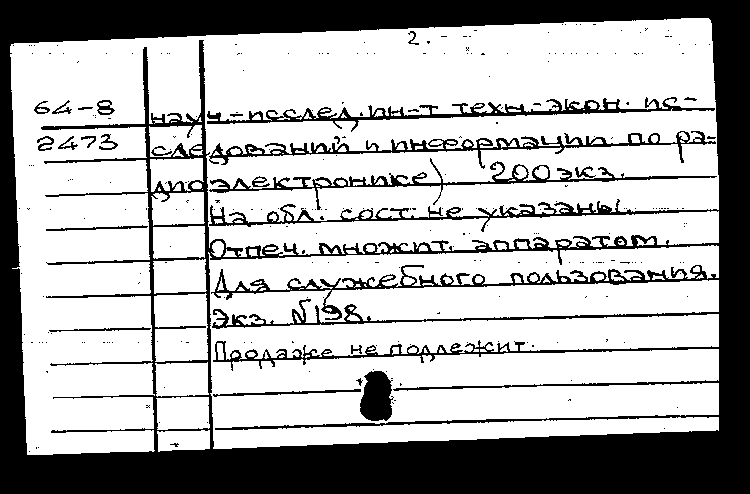 2.
64-8 науч.-исслед. ин-т техн.-экон. ис-
2473 следований и информации по ра-
диоэлектронике) 200 экз.
На обл. сост. не указаны.
Отпеч. множит. аппаратом.
Для служебного пользования.
Экз. №198.
Продаже не подлежит.